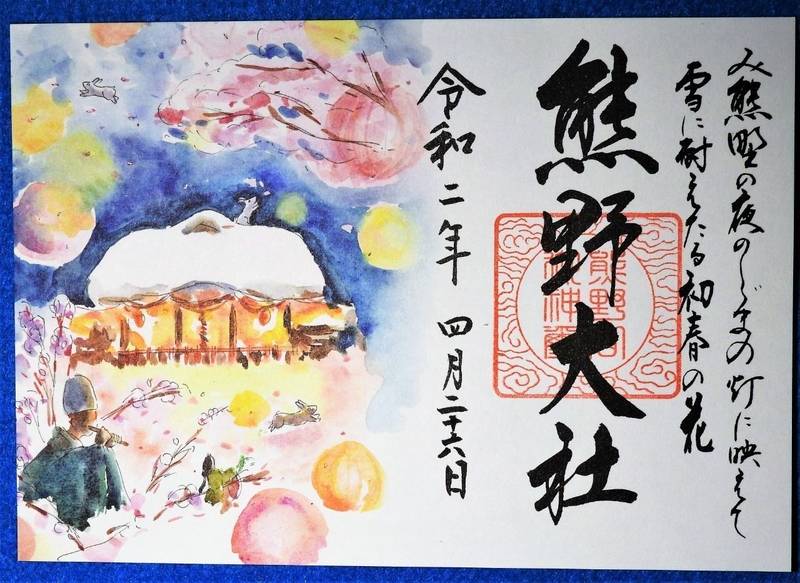 み熊野の夜のしじまの灯に映えて
雪に耐えたる初春の花
熊野大社
令和二年 四月二十六日